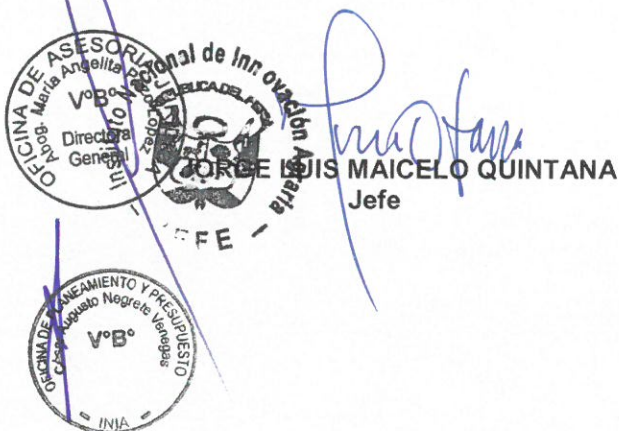 OFICINA DE ASESORIA JURIDICA
Abog. María Angelita
López
V°B°
Directora
General
Instituto Nacional de Innovación Agraria
REPUBLICA DEL PERU
JEFE
JORGE LUIS MAICELO QUINTANA
Jefe
OFICINA DE PLANEAMIENTO Y PRESUPUESTO
César Augusto Negrete Venegas
V°B°
INIA